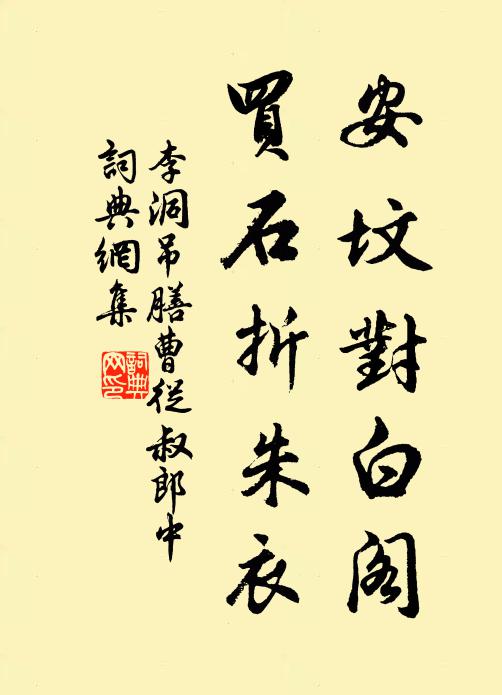 安墳對白閣
買石折朱衣
李洞吊膳曹從叔郎中
詞典網集
詞典网印